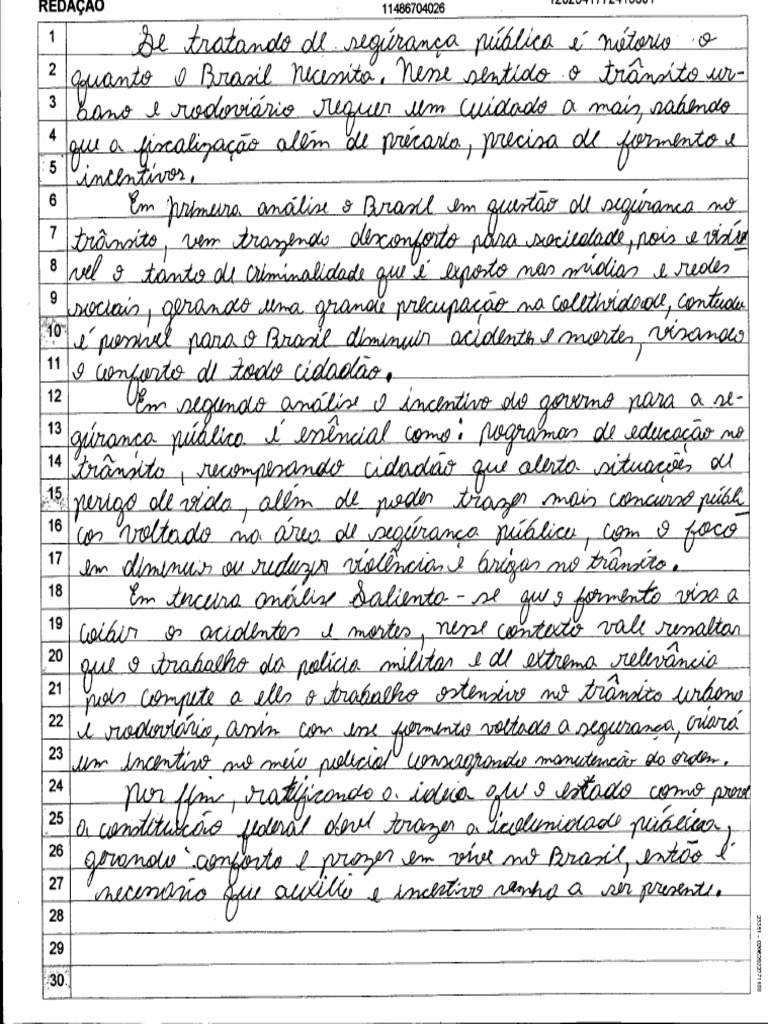 REDAÇÃO
11486704026
1 Se tratando de segúrança pública é nótorio o
2 quanto o Brasil necessita. Nesse sentido o trânsito ur-
3 bano e rodoviário requer um cuidado a mais, sabendo
4 que a fiscalização além de précaria, precisa de formento e
5 incentivos.
6 Em primeira análise o Brasil em questão de segúrança no
7 trânsito, vem trazendo desconforto para sociedade, pois e visí
8 vel o tanto de criminalidade que é exposto nas mídias e redes
9 sociais, gerando uma grande precupação na coletividade, contudo
10 é possível para o Brasil diminuir acidentes e mortes, visando
11 o conforto de todo cidadão.
12 Em segundo análise o incentivo do governo para a se-
13 gúrança pública é essêncial como: pogramas de educação no
14 trânsito, recompesando cidadão que alerta situações de
15 perigo de vida, além de poder trazer mais concurso públi
16 cos voltado na área de segúrança pública, com o foco
17 em diminuir ou reduzir violências e brigas no trânsito.
18 Em terceira análise Salienta-se que o formento visa a
19 coibir os acidentes e mortes, nesse contexto vale ressaltar
20 que o trabalho da polícia militar e de extrema relevância
21 pois compete a eles o trabalho ostensivo no trânsito urbano
22 e rodoviário, assim com esse formento voltado a segurança, criará
23 um incentivo no meio policial consagrando manutenção da ordem.
24 Por fim, ratificando a ideia que o estado como prevê
25 a constituição federal deve trazer a incolumidade pública,
26 gerando conforto e prazer em vive no Brasil, então é
27 necessário que auxilio e incentivo venha a ser presente.
28
29
30